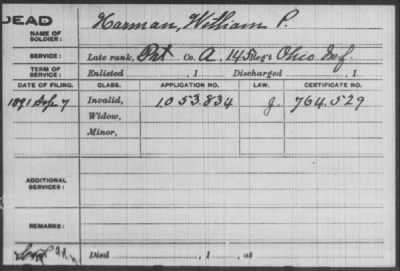 DEAD
NAME OF SOLDIER: Harman, William P.
SERVICE: Late rank, Pvt Co. A, 145 Reg't Ohio Inf.
TERM OF SERVICE: Enlisted , 1 Discharged , 1
DATE OF FILING. CLASS. APPLICATION NO. LAW. CERTIFICATE NO.
1891 Sep. 7 Invalid, 1.053.834 J. 764.529
Widow,
Minor,
ADDITIONAL SERVICES:
REMARKS:
Died , 1 , at